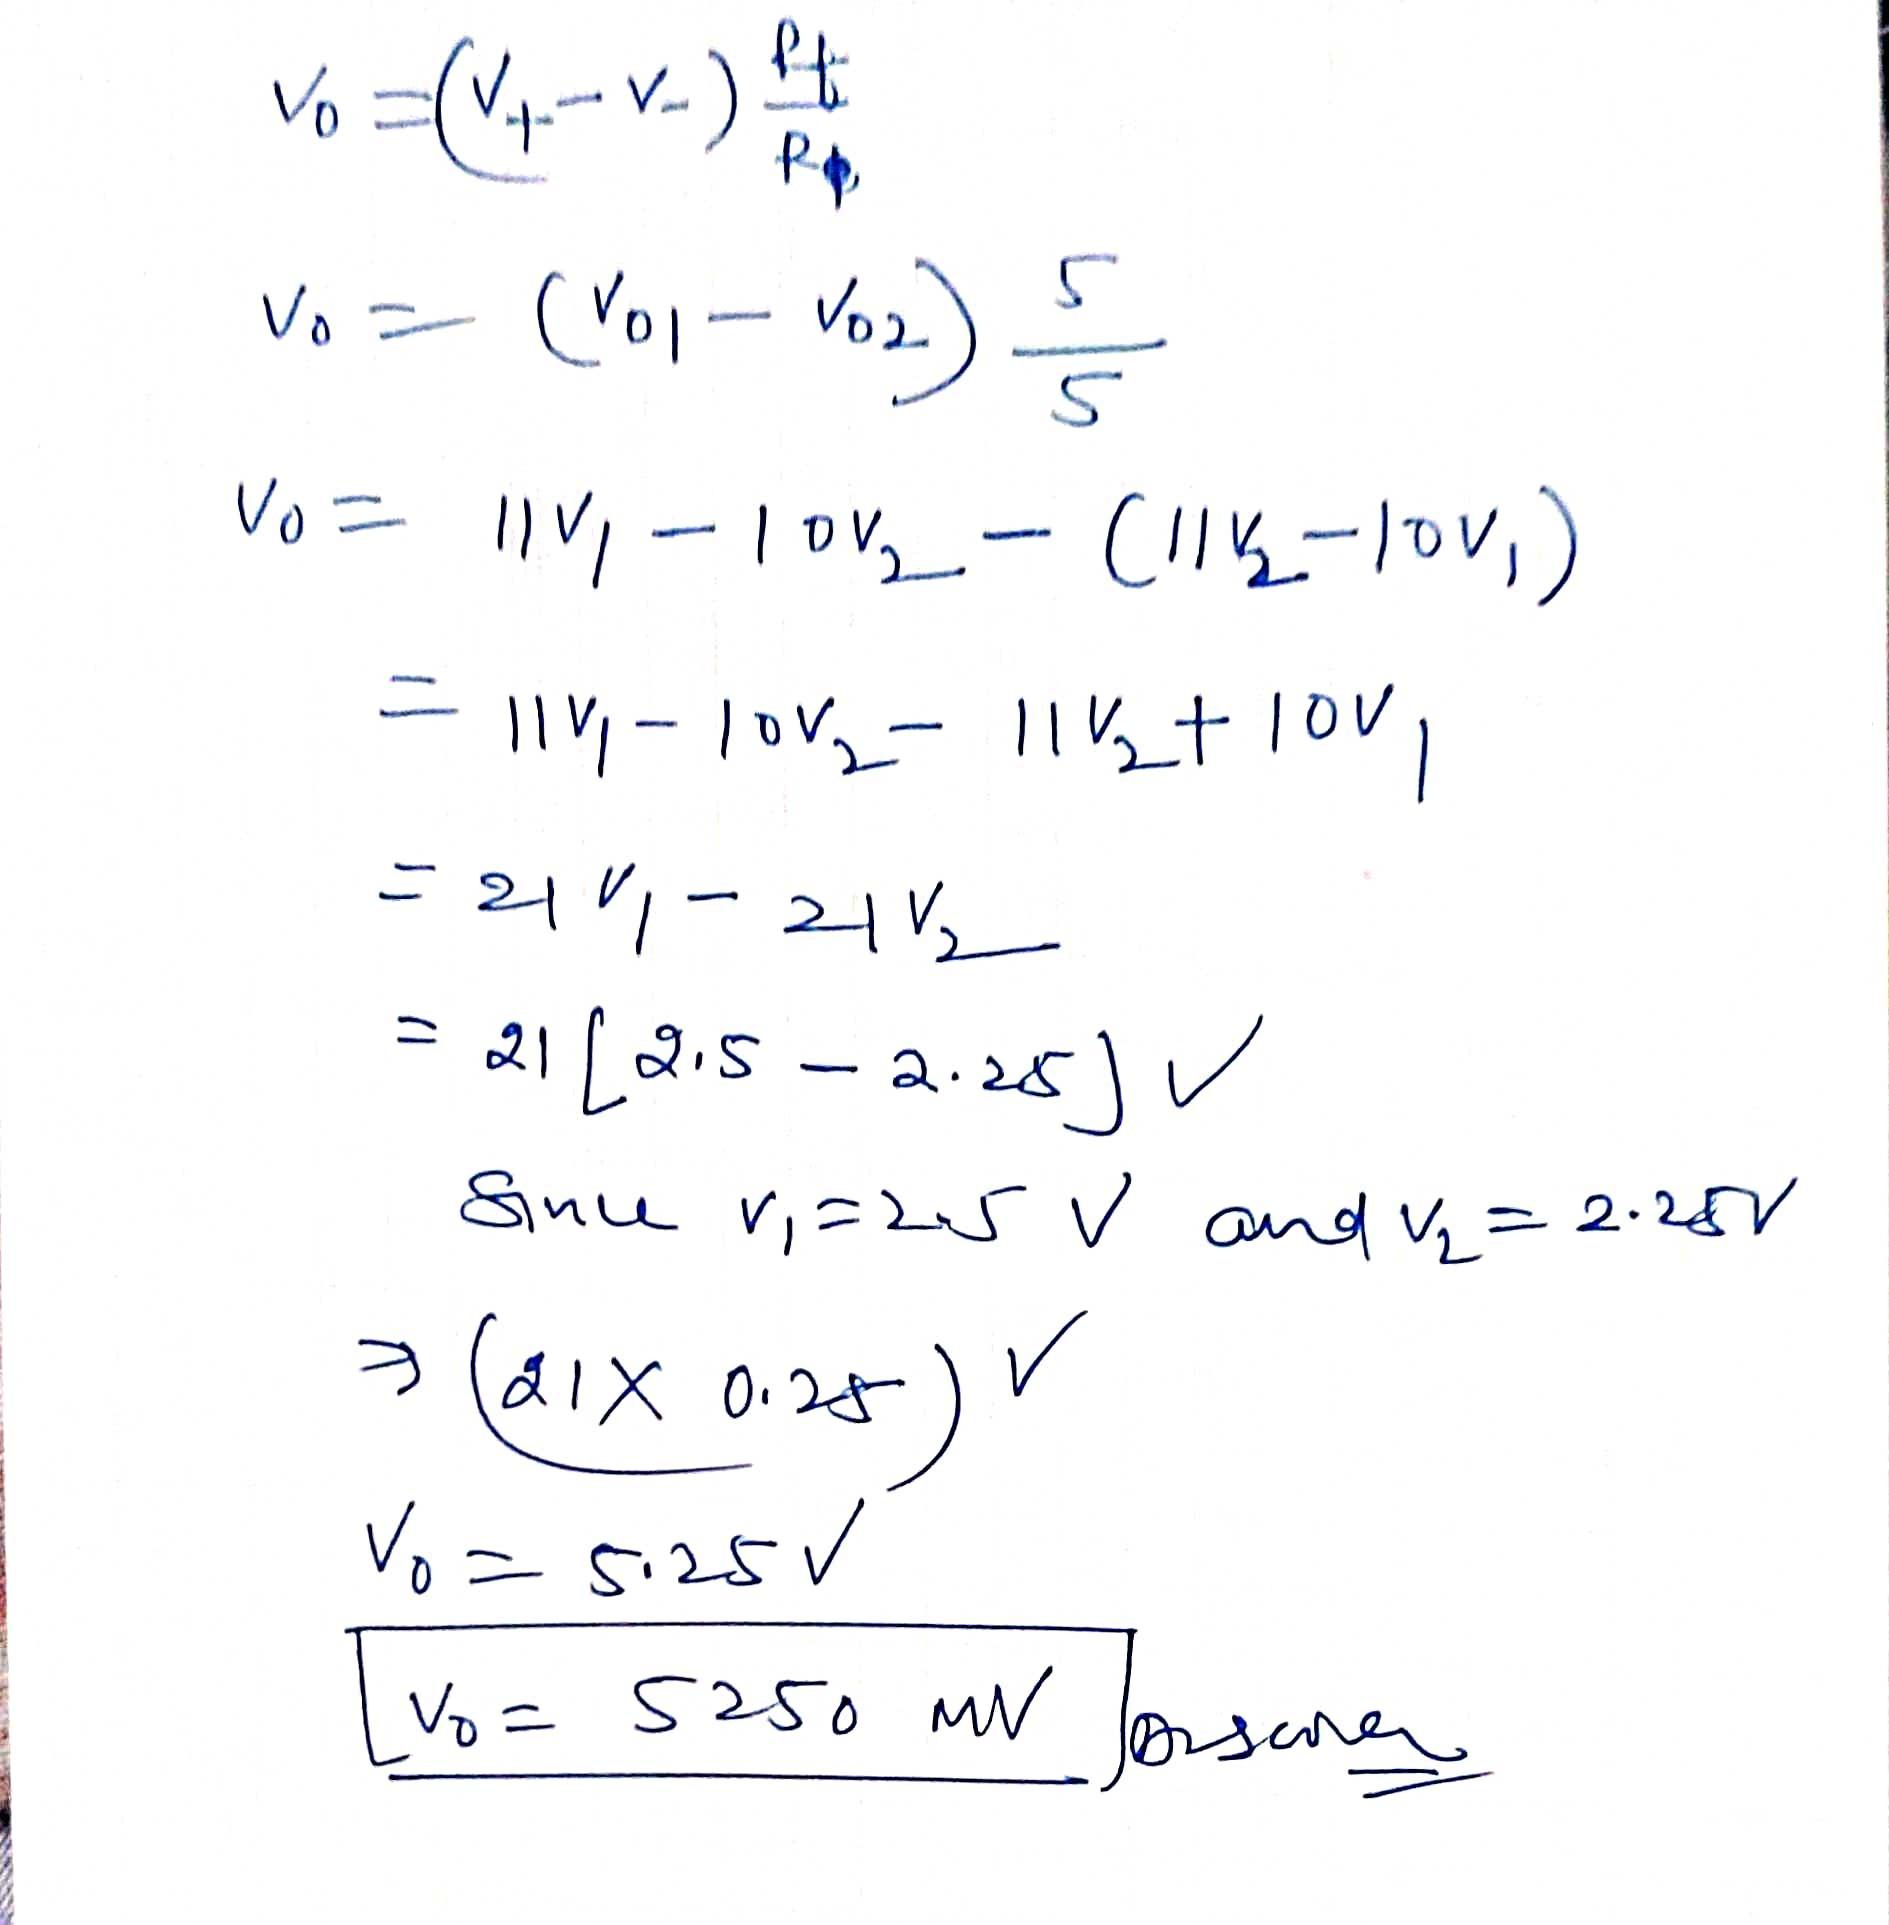 V0 = (V+ - V-) Rf/R1
V0 = (V01 - V02) 5/5
V0 = 11V1 - 10V2 - (11V2 - 10V1)
= 11V1 - 10V2 - 11V2 + 10V1
= 21V1 - 21V2
= 21[2.5 - 2.25] V
Since V1 = 2.5 V and V2 = 2.25V
⇒ (21 X 0.25) V
V0 = 5.25V
V0 = 5250 mV Answer